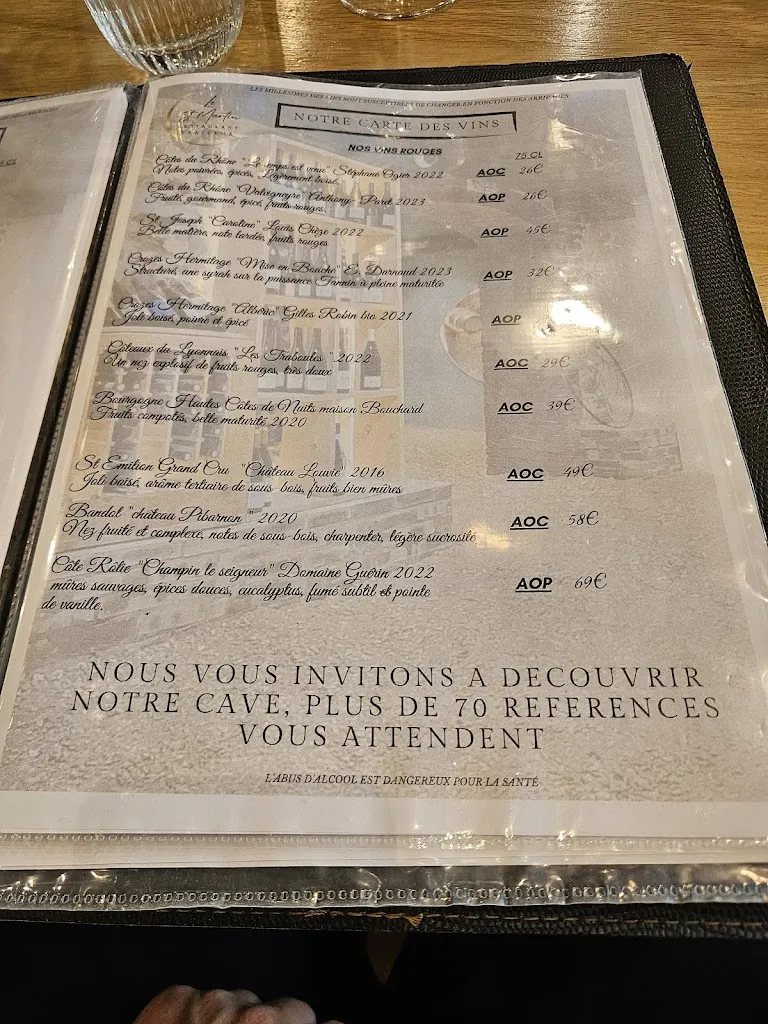 LES MILLÉSIMES DES VINS SONT SUSCEPTIBLES DE CHANGER EN FONCTION DES ARRIPAGES
Le
St Martin
RESTAURANT
NOTRE CARTE DES VINS
NOS VINS ROUGES
75 CL
Côtes du Rhône "Le temps est venu" Stéphane Ogier 2022 AOC 26€
Notes poivrées, épices, Légèrement boisé
Côtes du Rhône "Valvigneyre" Anthony Paret 2023 AOP 26€
Fruité, gourmand, épicé, fruits rouges.
St Joseph "Caroline" Louis Chèze 2022 AOP 45€
Belle matière, note lardée, fruits rouges
Crozes Hermitage "Mise en Bouche" E. Darnaud 2023 AOP 32€
Structuré, une syrah sur la puissance Tannin à pleine maturitée
Crozes Hermitage "Albéric" Gilles Robin bio 2021 AOP
Joli boisé, poivre et épicé
Côteaux du Lyonnais "Les Traboules" 2022 AOC 29€
Un nez explosif de fruits rouges, très doux
Bourgogne Hautes Côtes de Nuits maison Bouchard AOC 39€
Fruits compotés, belle maturité 2020
St Emilion Grand Cru "Château Louvie" 2016 AOC 49€
Joli boisé, arôme tertiaire de sous-bois, fruits bien mûres
Bandol "château Pibarnon" 2020 AOC 58€
Nez fruité et complexe, notes de sous-bois, charpenter, légère sucrosité
Côte Rôtie "Champin le seigneur" Domaine Guérin 2022 AOP 69€
mûres sauvages, épices douces, eucalyptus, fumé subtil et pointe
de vanille.
NOUS VOUS INVITONS A DECOUVRIR
NOTRE CAVE, PLUS DE 70 REFERENCES
VOUS ATTENDENT
L'ABUS D'ALCOOL EST DANGEREUX POUR LA SANTÉ